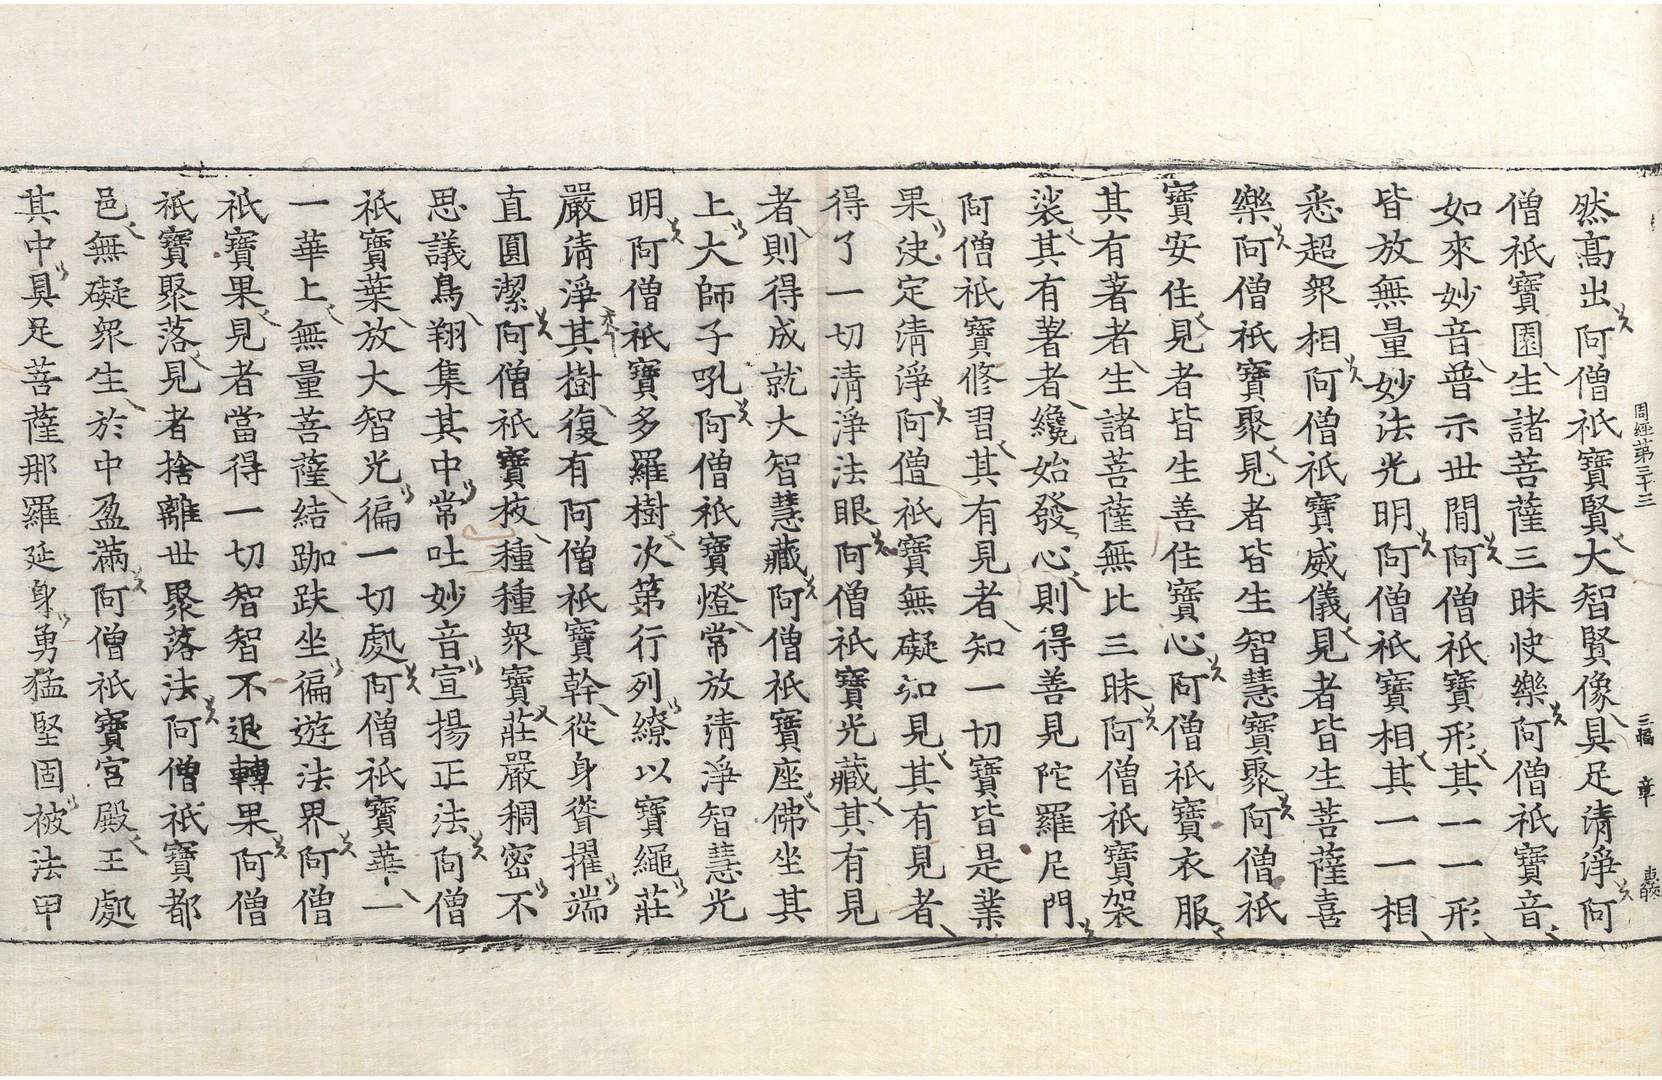 周經第三十三 三幅 章
然高出阿僧祇寶賢大智賢像具足清淨阿
僧祇寶園生諸菩薩三昧快樂阿僧祇寶音
如來妙音普示世間阿僧祇寶形其一一形
皆放無量妙法光明阿僧祇寶相其一一相
悉超衆相阿僧祇寶威儀見者皆生菩薩喜
樂阿僧祇寶聚見者皆生智慧寶聚阿僧祇
寶安住見者皆生善住寶心阿僧祇寶衣服
其有著者生諸菩薩無比三昧阿僧祇寶袈
裟其有著者纔始發心則得善見陀羅尼門
阿僧祇寶修習其有見者知一切寶皆是業
果決定清淨阿僧祇寶無礙知見其有見者
得了一切清淨法眼阿僧祇寶光藏其有見
者則得成就大智慧藏阿僧祇寶座佛坐其
上大師子吼阿僧祇寶燈常放清淨智慧光
明阿僧祇寶多羅樹次第行列繚以寶繩莊
嚴清淨其樹復有阿僧祇寶幹從身聳擢端
直圓潔阿僧祇寶枝種種衆寶莊嚴稠密不
思議鳥翔集其中常吐妙音宣揚正法阿僧
祇寶葉放大智光徧一切處阿僧祇寶華一
一華上無量菩薩結跏趺坐徧遊法界阿僧
祇寶果見者當得一切智智不退轉果阿僧
祇寶聚落見者捨離世聚落法阿僧祇寶都
邑無礙衆生於中盈滿阿僧祇寶宮殿王處
其中具足菩薩那羅延身勇猛堅固被法甲